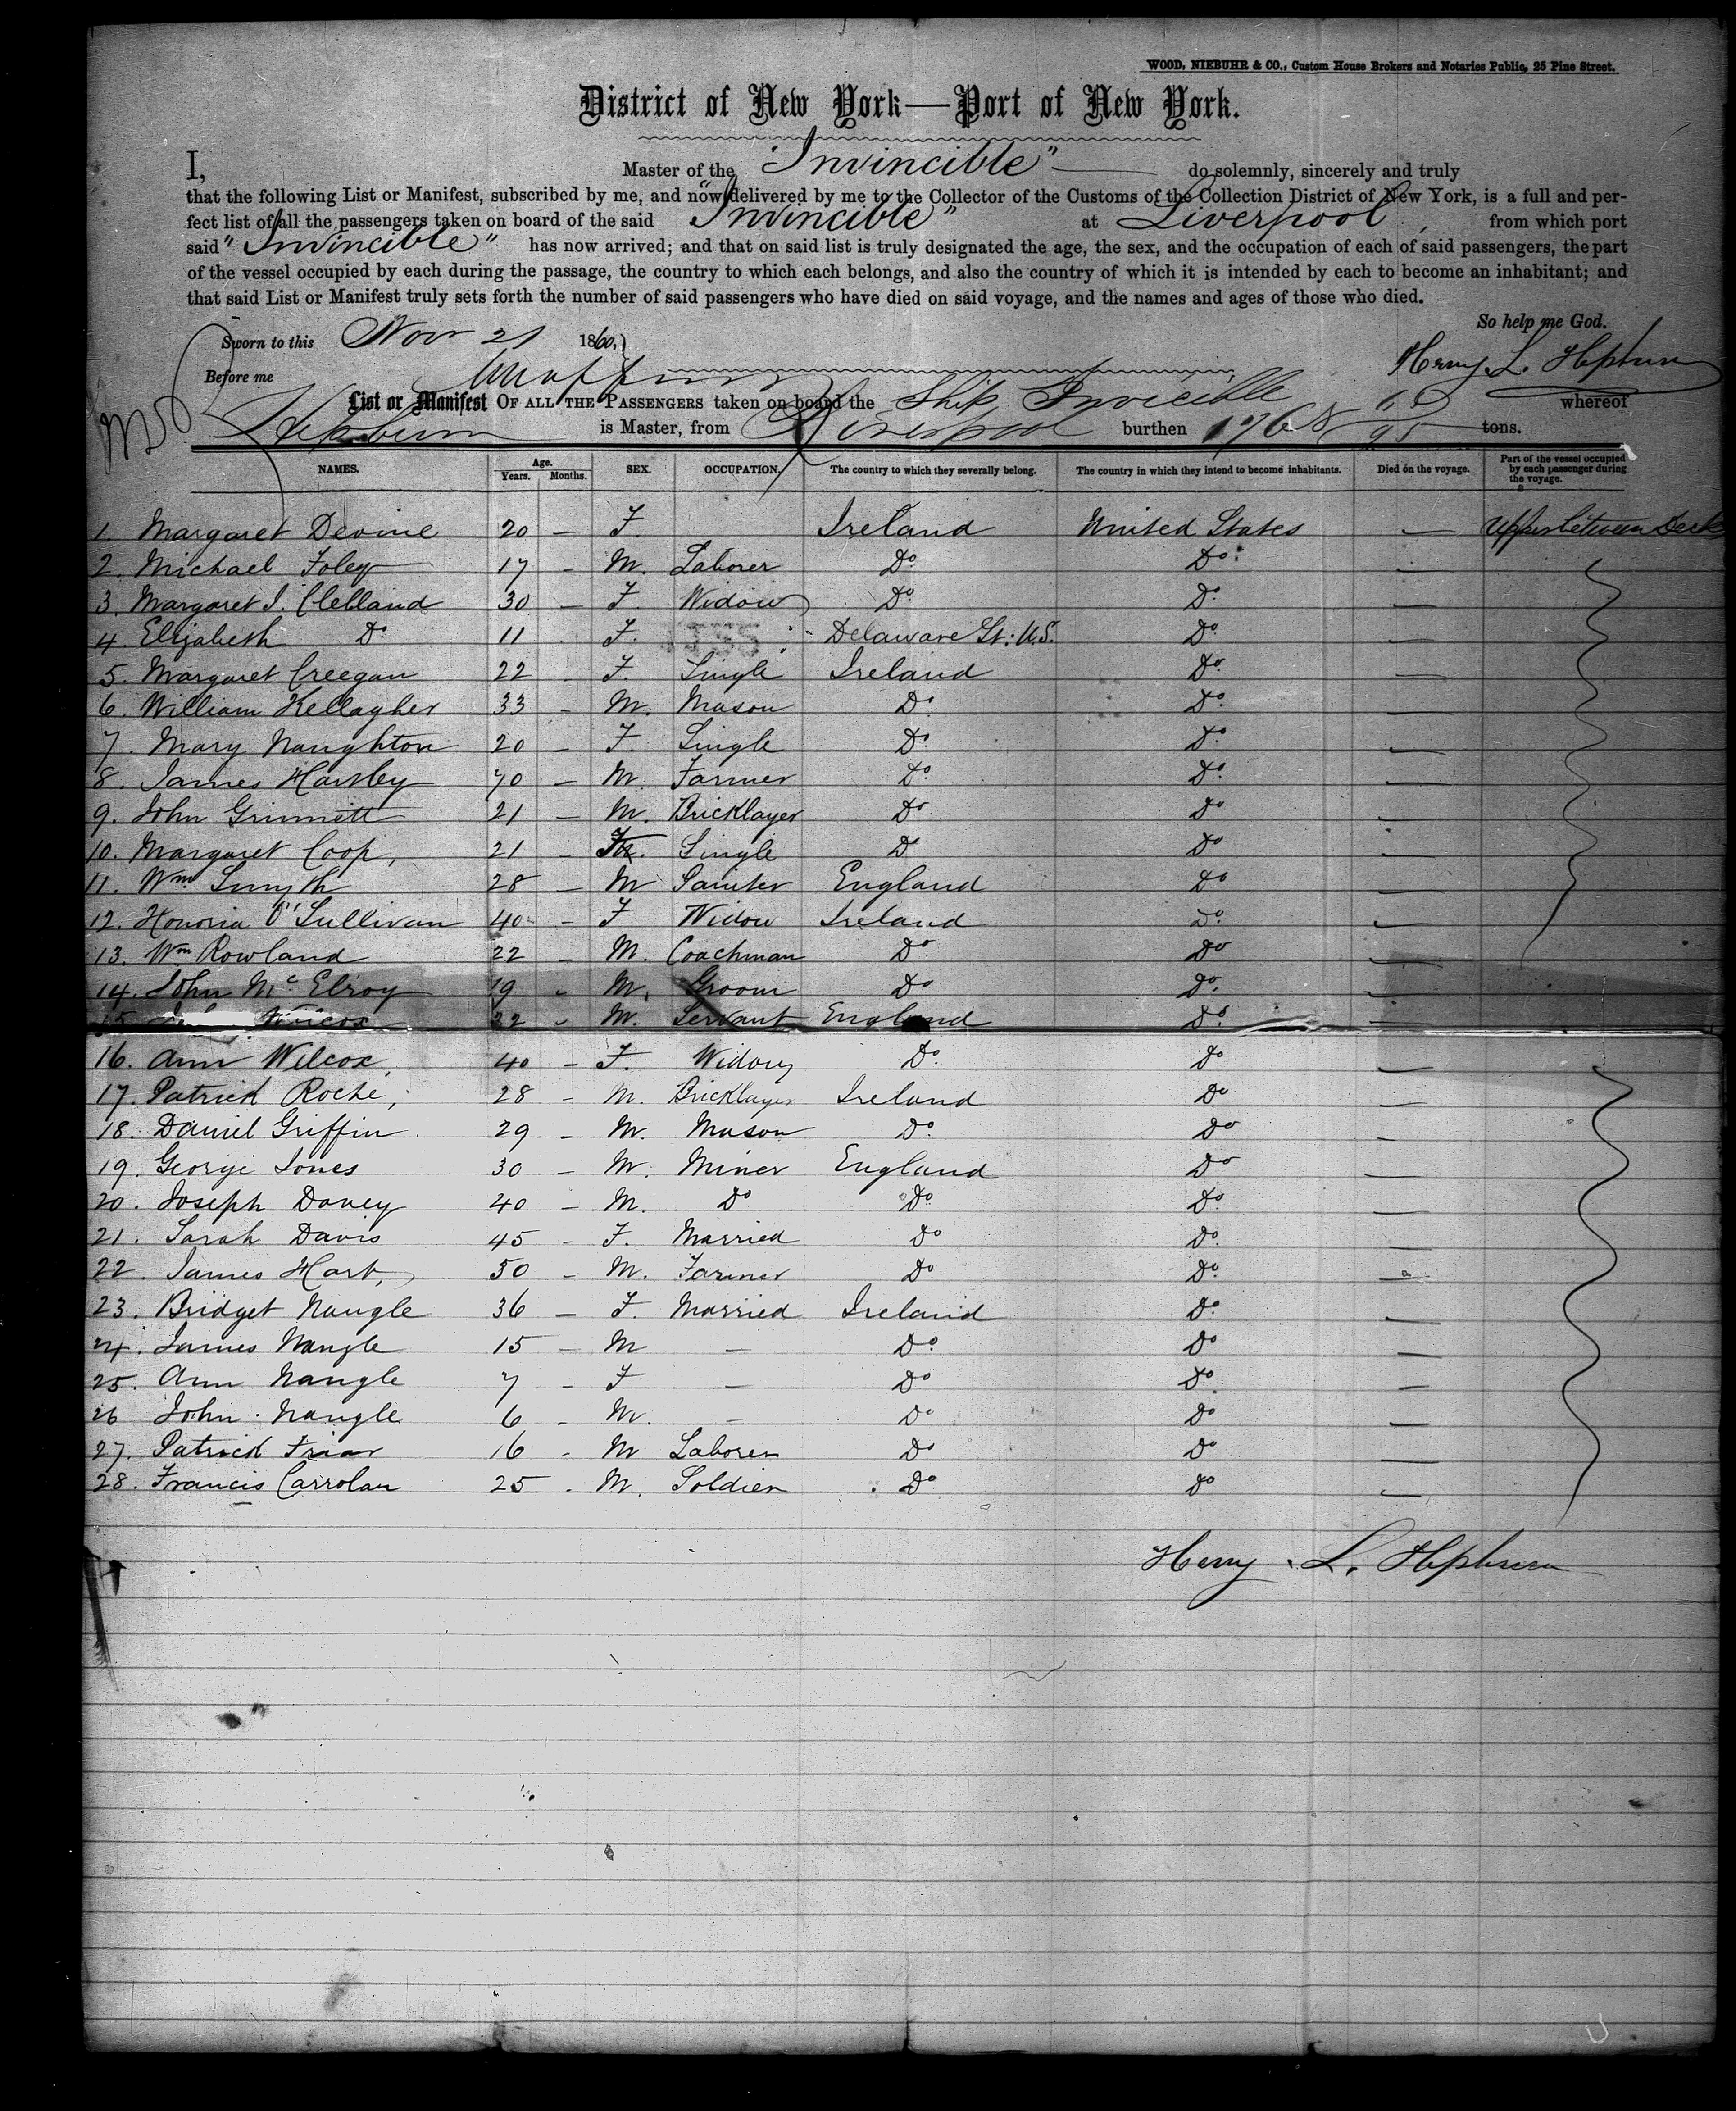 WOOD, NIEBUHR & CO., Custom House Brokers and Notaries Public, 25 Pine Street.
District of New York—Port of New York.
I, Master of the "Invincible" do solemnly, sincerely and truly
that the following List or Manifest, subscribed by me, and now delivered by me to the Collector of the Customs of the Collection District of New York, is a full and per-
fect list of all the passengers taken on board of the said "Invincible" at Liverpool, from which port
said "Invincible" has now arrived; and that on said list is truly designated the age, the sex, and the occupation of each of said passengers, the part
of the vessel occupied by each during the passage, the country to which each belongs, and also the country of which it is intended by each to become an inhabitant; and
that said List or Manifest truly sets forth the number of said passengers who have died on said voyage, and the names and ages of those who died.
So help me God.
Sworn to this Nov 21 1860,
Henry L. Hepburn
Before me
List or Manifest OF ALL THE PASSENGERS taken on board the Ship Invicible whereof
Hepburn is Master, from Liverpool burthen 1768 tons.
NAMES. Age. Years. Months. SEX. OCCUPATION. The country to which they severally belong. The country in which they intend to become inhabitants. Died on the voyage. Part of the vessel occupied by each passenger during the voyage.
1. Margaret Devine 20 — F. Ireland United States — Upper between Deck
2. Michael Foley 17 — M. Laborer Do Do —
3. Margaret J. Clelland 30 — F. Widow Do Do —
4. Elizabeth Do 11 F. Delaware St: U.S. Do —
5. Margaret Creegan 22 — F. Single Ireland Do —
6. William Kellagher 33 — M. Mason Do Do —
7. Mary Naughton 20 — F. Single Do Do —
8. James 70 — M. Farmer Do Do —
9. John Grimmett 21 — M. Bricklayer Do Do —
10. Margaret Coop, 21 — F. Single Do Do —
11. Wm Smyth 28 — M Painter England Do —
12. Honoria O'Sullivan 40 — F Widow Ireland Do —
13. Wm Rowland 22 — M. Coachman Do Do —
14. John Mc Elroy 19 — M. Groom Do Do —
15. 22 — M. Servant England Do —
16. Ann Wilcox, 40 — F. Widow Do Do —
17. Patrick Roche, 28 — M. Bricklayer Ireland Do —
18. Daniel Griffin 29 — M. Mason Do Do —
19. George Jones 30 — M. Miner England Do —
20. Joseph Davey 40 — M. Do Do Do —
21. Sarah Davis 45 — F. Married Do Do —
22. James Hart, 50 — M. Farmer Do Do —
23. Bridget Nangle 36 — F. Married Ireland Do —
24. James Nangle 15 — M — Do Do —
25. Ann Nangle 7 — F — Do Do —
26 John Nangle 6 — M. — Do Do —
27. Patrick Friar 16 — M Laborer Do Do —
28. Francis Carrolan 25 — M. Soldier Do Do —
Henry L. Hepburn